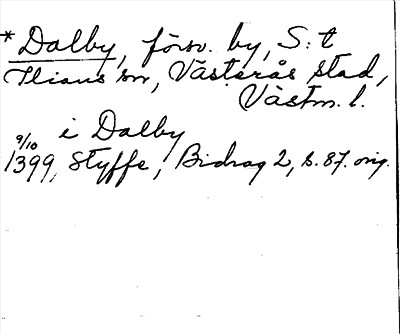 * Dalby, försv. by, S:t
Ilians sn, Västerås stad,
Västm. l.
i Dalby
9/10 1399, Styffe, Bidrag 2, s. 87. orig.